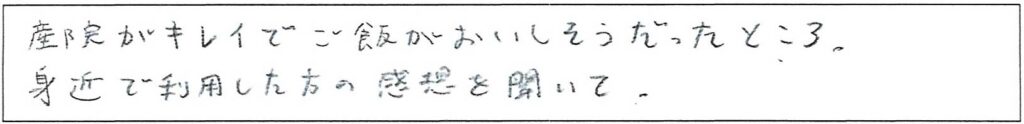 産院がキレイでご飯がおいしそうだったところ。
身近で利用した方の感想を聞いて。